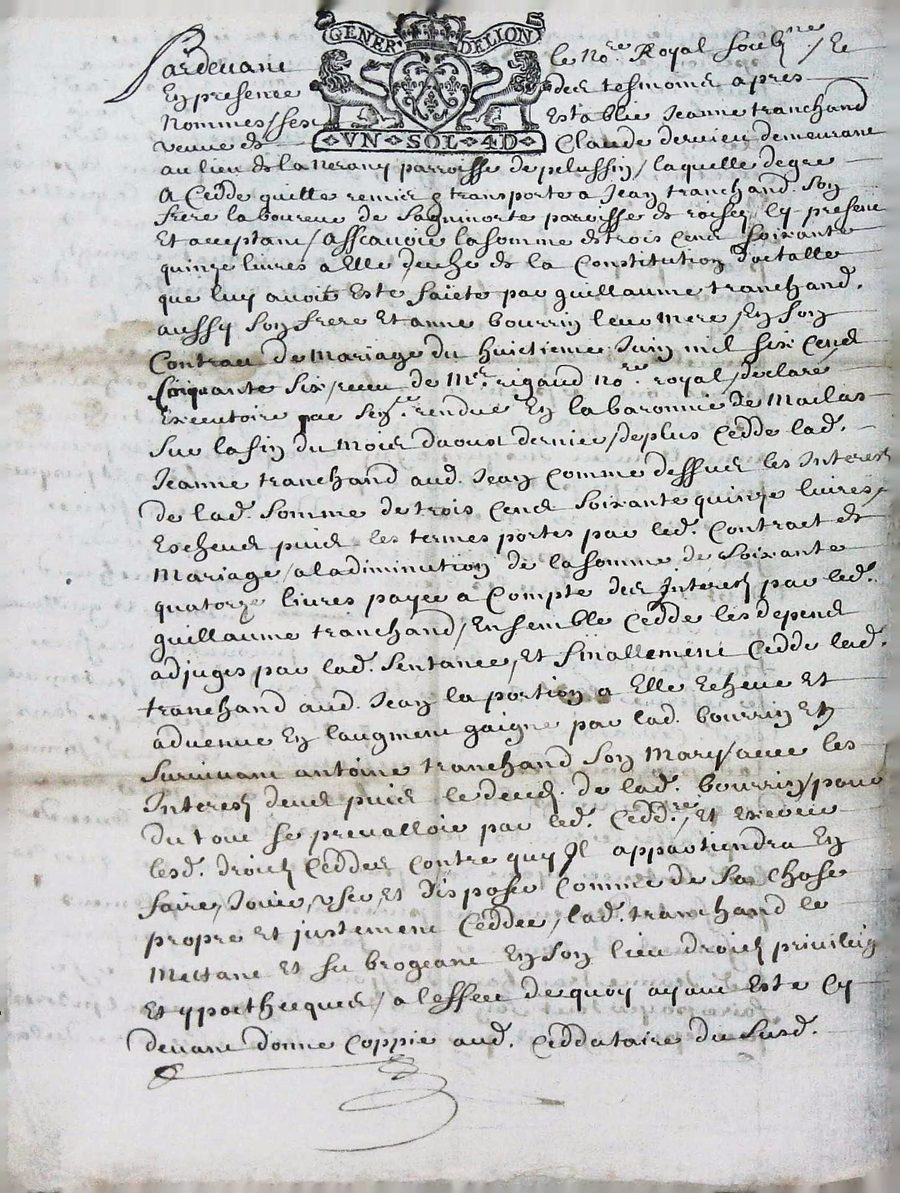 GENER. DELION
VN SOL 4D
Pardevant le no.re Royal soub.ne / Et
En presence des tesmoins apres
Nommes / sest Establie Jeanne tranchand
vefve de Claude dervieu demeurant
au lieu de la Nerany parroisse de pelussin / laquelle de gre
A Cedde quitte remis & transporte a Jean tranchand son
frere laboureur de Sagnimorte paroisse de roisey / Cy present
Et acceptant / assavoir la somme de trois Cens soixante
quinze livres a Elle deuhe de la Constitution dotalle
que luy avoit Este faicte par guillaume tranchand
aussy son frere Et anne bourrin leur Mere / En son
Contrat de Mariage du huictieme Juin mil six Cens
Cinquante six / receu de M.e rigaud no.re royal / declare
Executoire par Sen.ce rendue En la baronnie de Maclas
sur la fin du Mois daoust dernier / de plus Cedde lad.
Jeanne tranchand aud. Jean Comme dessus les Interes
de lad. somme de trois Cens soixante quinze livres /
Escheus puis les termes portes par led. Contract de
Mariage / a la diminution de la somme de soixante
quatorze livres payee a Compte des Interes par led.
guillaume tranchand / Ensemble Cedde les depens
adjuges par lad. sentance, Et finallement Cedde lad.
tranchand aud. Jean la portion a Elle Echeue Et
advenue En laugment gaigne par lad. bourrin En
survivant antoine tranchand son Mary / avec les
Interes deus puis le deces de lad. bourrin / pour
du tout se prevalloir par led. Cedd.re / Et Exercer
lesd. droics Ceddes Contre quy Il appartiendra En
faire, Jouir, user Et disposer Comme de sa Chose
propre Et justement Ceddee / lad. tranchand le
Mettant Et subrogeant En son lieu droics privileg
Et ypothecques / a leffect de quoy ayant Este Cy
devant donne Coppie aud. Ceddataire du susd.